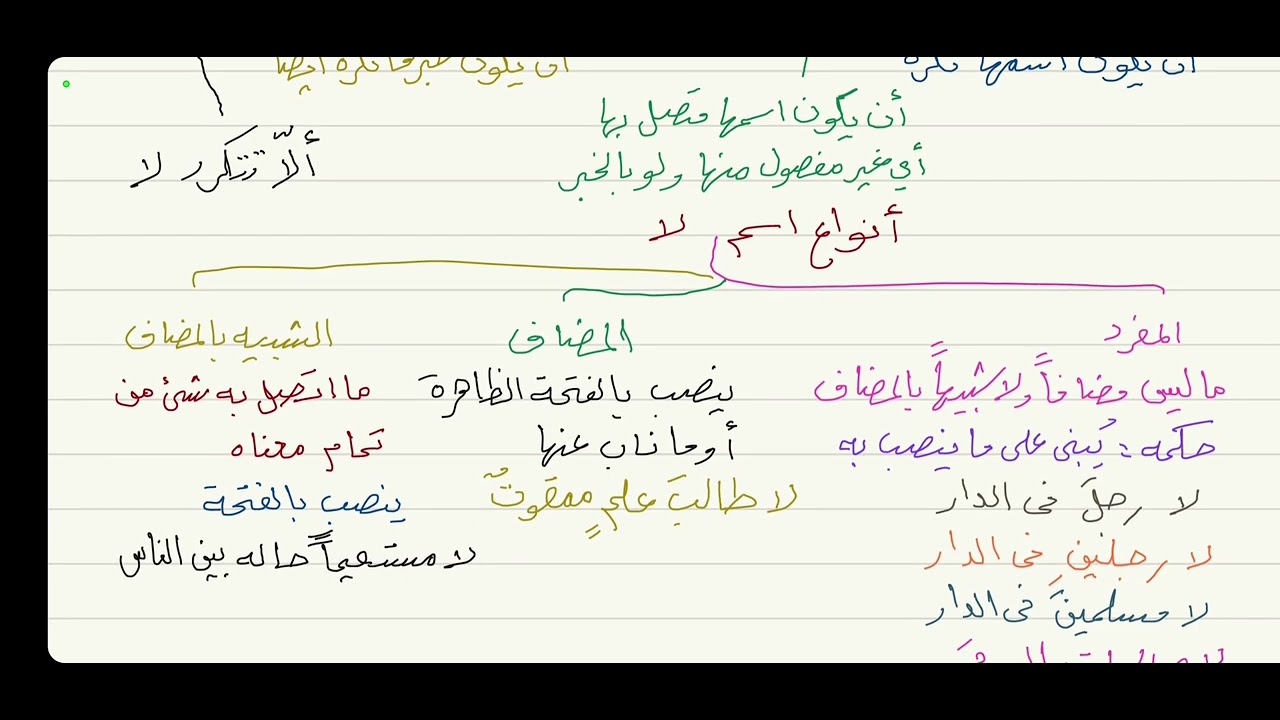 أن يكون اسمها نكرة
أن يكون خبرها نكرة أيضا
أن يكون اسمها متصل بها
أي غير مفصول منها ولو بالخبر
ألّا تتكرر لا
أنواع اسم لا
المفرد
ما ليس مضافاً ولا شبيهاً بالمضاف
حكمه : يُبنى على ما ينصب به
لا رجلَ في الدار
لا رجلينِ في الدار
لا مسلمينَ في الدار
المضاف
ينصب بالفتحة الظاهرة
أو ما ناب عنها
لا طالبَ علمٍ ممقوتٌ
الشبيه بالمضاف
ما اتصل به شئ من
تمام معناه
ينصب بالفتحة
لا مستقيماً حاله بين الناس